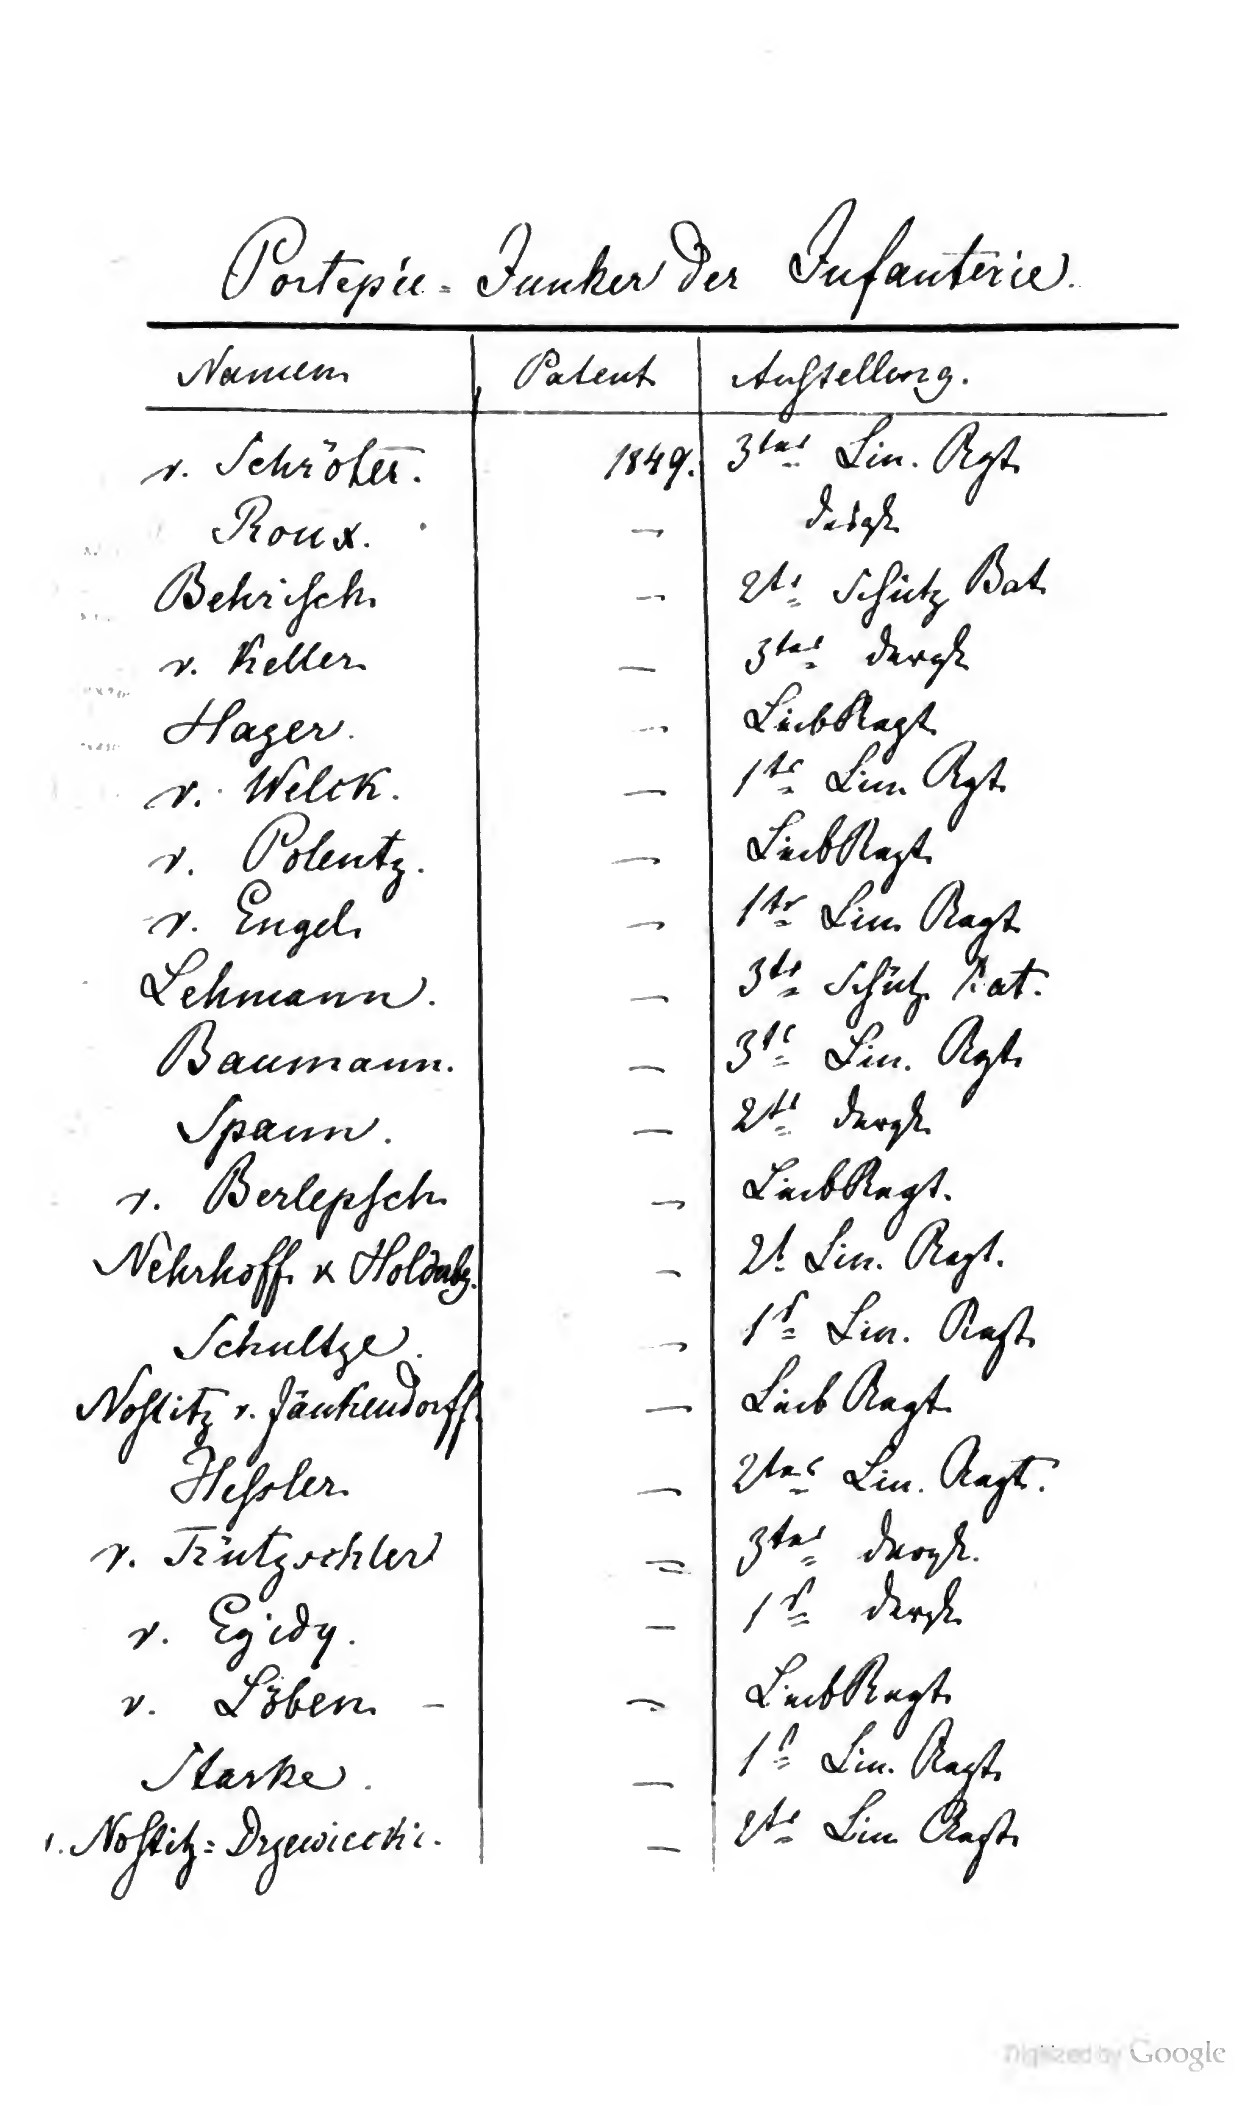 Portepée-Junker der Infanterie.
Namen Patent Anstellung.
v. Schröter. 1849. 3tes Lin. Rgt.
Roux. — desgl.
Behrisch. — 2ts Schütz Bat.
v. Keller. — 3tes dergl.
Hager. — LeibRegt.
v. Welck. — 1tes Lin. Rgt.
v. Polentz. — LeibRegt.
v. Engel. — 1tes Lin. Regt.
Lehmann. — 3ts Schütz. Bat.
Baumann. — 3ts Lin. Rgt.
Spann. — 2ts dergl.
v. Berlepsch. — LeibRegt.
Nehrhoff v Holderbg. — 2t Lin. Regt.
Schultze. — 1s Lin. Regt.
Nostitz v. Jänkendorff. — Leib Regt.
Hessler. — 2tes Lin. Regt.
v. Trützschler — 3tes dergl.
v. Egidy. — 1s dergl.
v. Löben — LeibRegt.
Starke. — 1s Lin. Regt.
v. Nostitz-Drzewiecki. — 2ts Lin Regt.
Digitized by Google